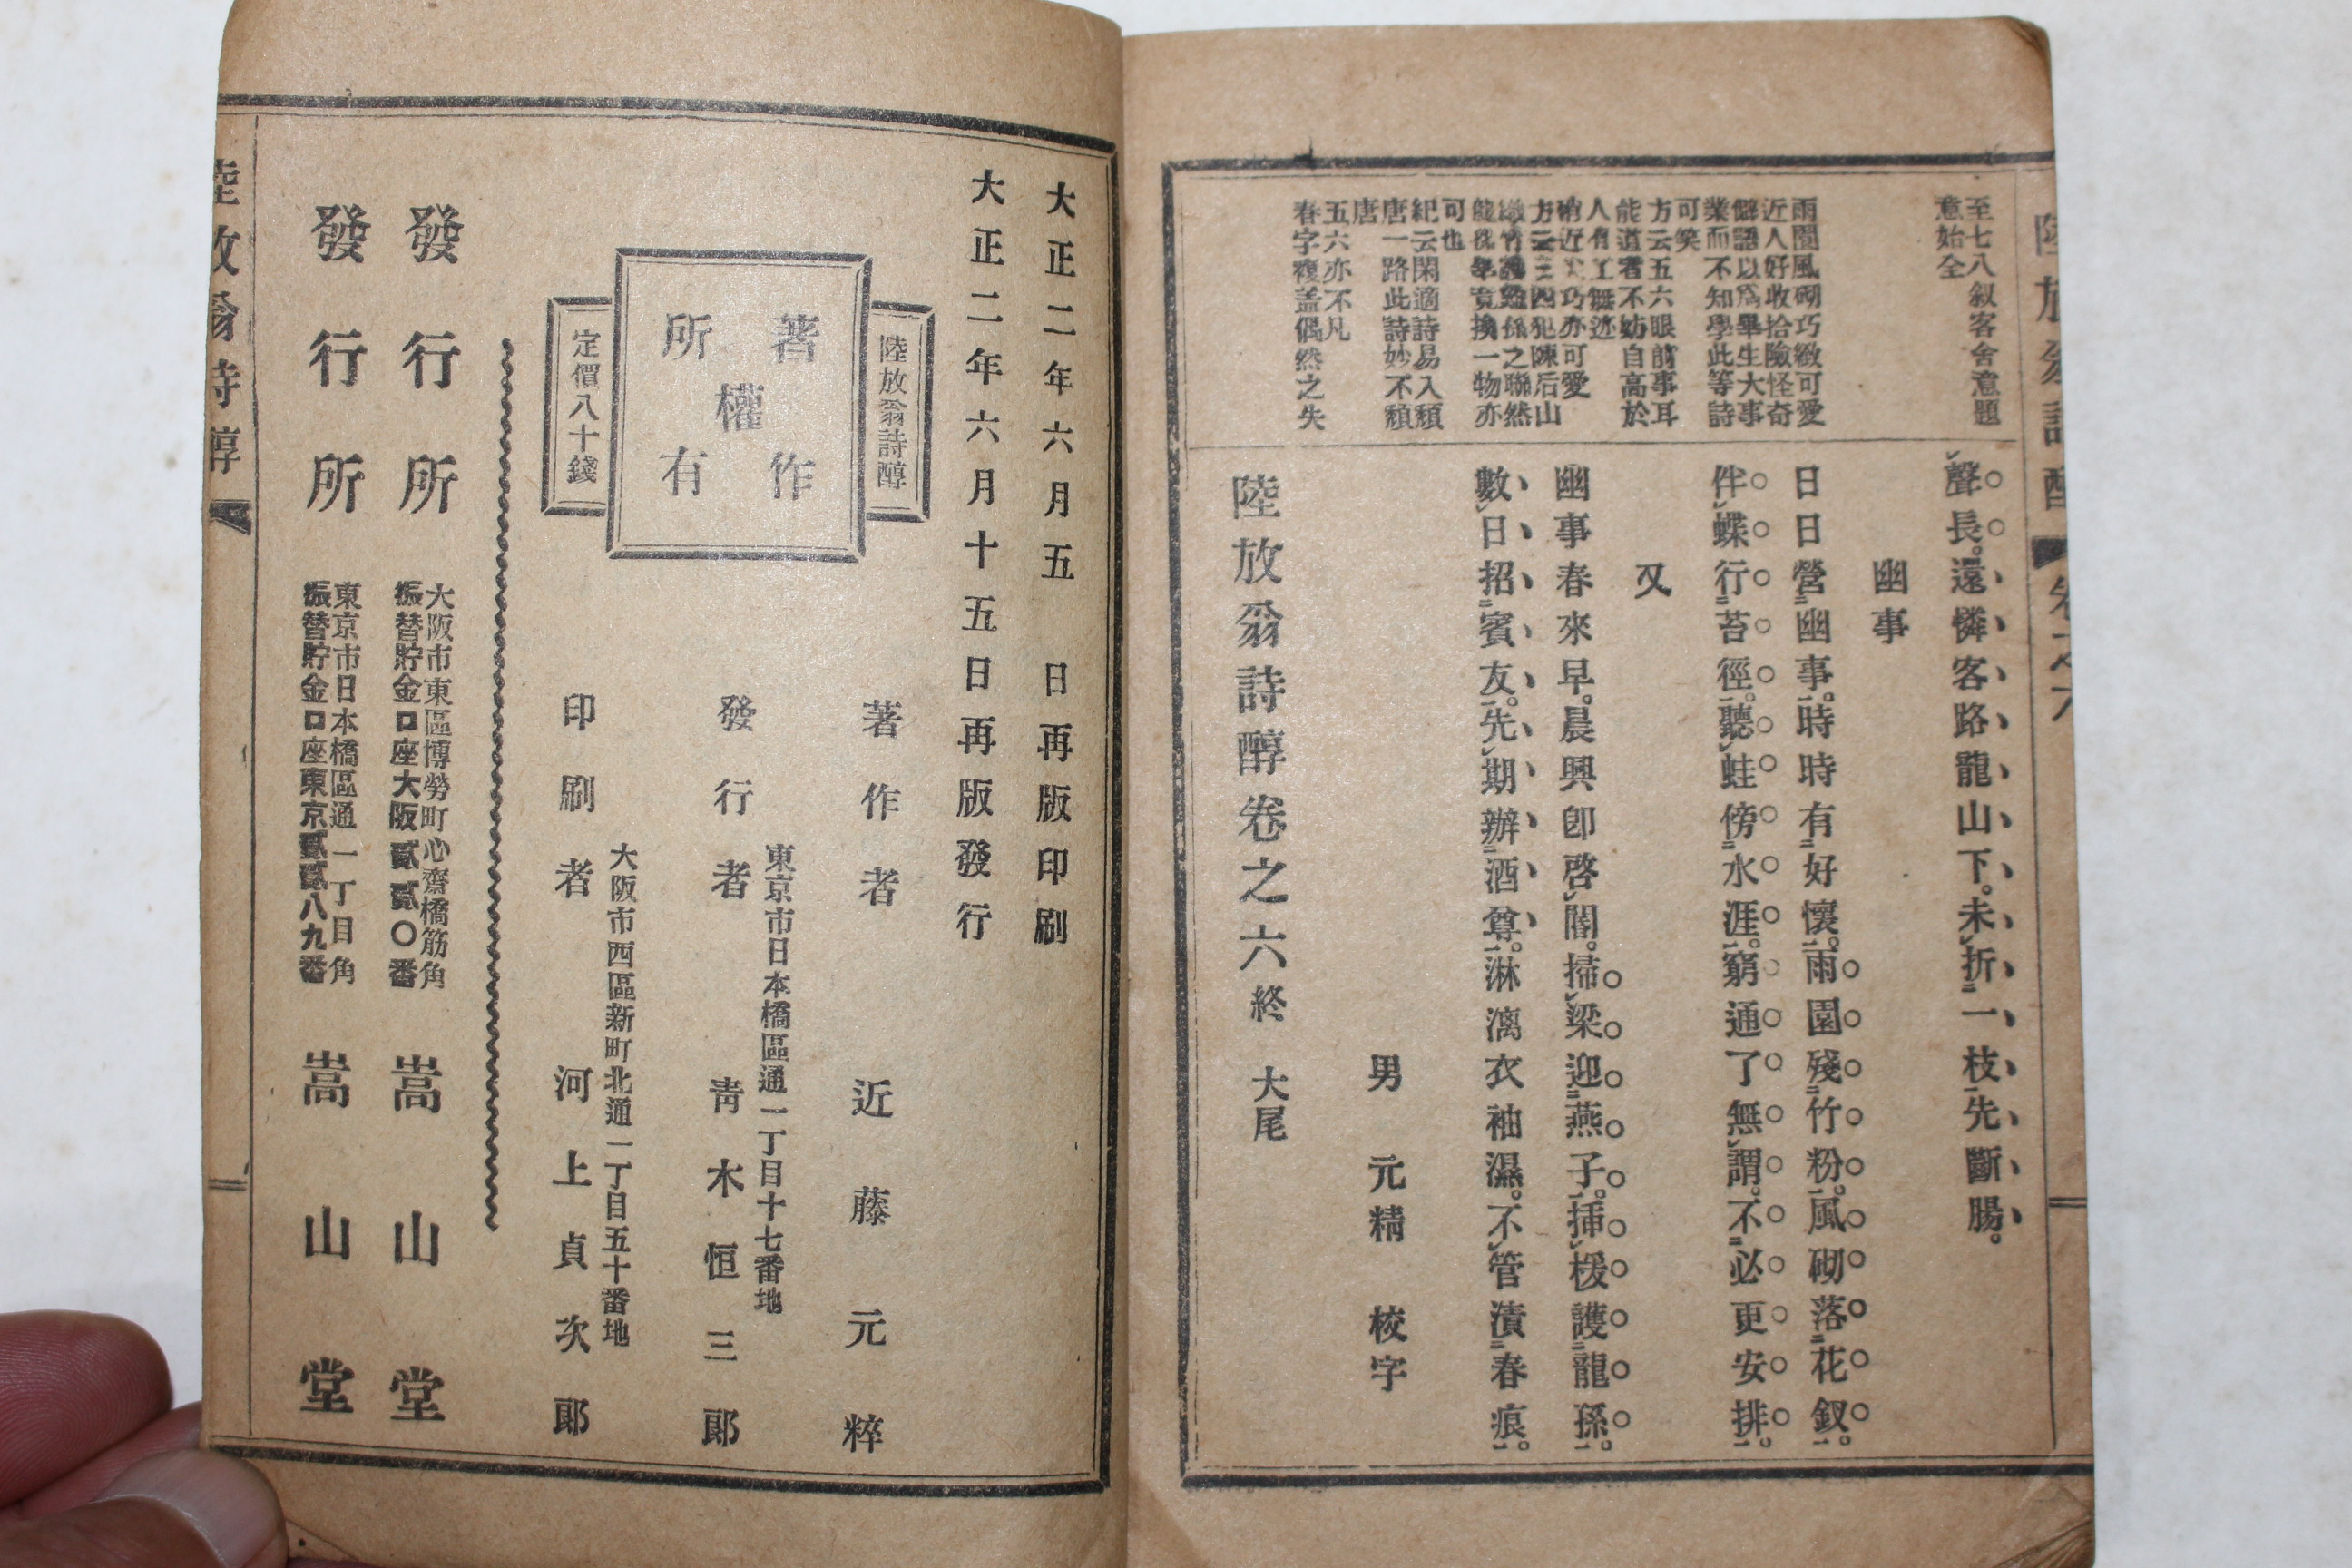 至七八叙客舍意題
意始全
雨園風砌巧緻可愛
近人好收拾險怪奇
僻語以爲畢生大事
業而不知學此等詩
可笑
方云五六眼前事耳
能道者不妨自高於
人有工無迹
巧亦可愛
方云三四犯陳后山
孫之聯然
換一物亦
可也
紀云閑適詩易入頽
唐一路此詩妙不頽
唐
五六亦不凡
春字複盖偶然之失
聲長。還憐客路龍山下。未折一枝先斷腸。
幽事
日日營幽事。時時有好懷。雨園殘竹粉。風砌落花釵。
伴蝶行苔徑。聽蛙傍水涯。窮通了無謂。不必更安排。
又
幽事春來早。晨興卽啓閤。掃梁迎燕子。揷楥護龍孫。
數日招賓友。先期辦酒尊。淋漓衣袖濕。不管漬春痕。
男 元精 校字
陸放翁詩醇卷之六終 大尾
大正二年六月五 日再版印刷
大正二年六月十五日再版發行
陸放翁詩醇
著作
權
所有
定價八十錢
著作者 近藤元粹
東京市日本橋區通一丁目十七番地
發行者 靑木恒三郎
大阪市西區新町北通一丁目五十番地
印刷者 河上貞次郎
發行所
大阪市東區博勞町心齋橋筋角
振替貯金口座大阪貳貳〇番
嵩山堂
發行所
東京市日本橋區通一丁目角
振替貯金口座東京貳貳八九番
嵩山堂
陸放翁詩醇